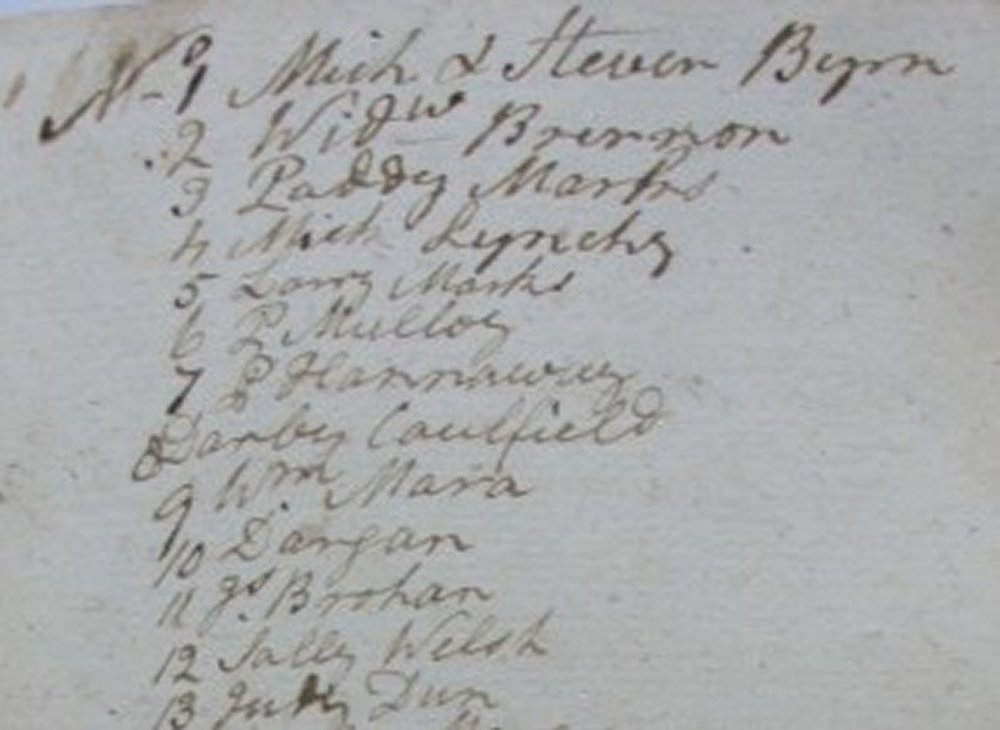 No 1 Mich & Steven Byrn
2 Widw Brennon
3 Paddy Marks
4 Mich Lynchy
5 Larry Marks
6 P Mulloy
7 P Hannaway
8 Darby Caulfield
9 Wm. Mara
10 Dargan
11 Js. Brohan
12 Sally Welsh
13 Judy Dun